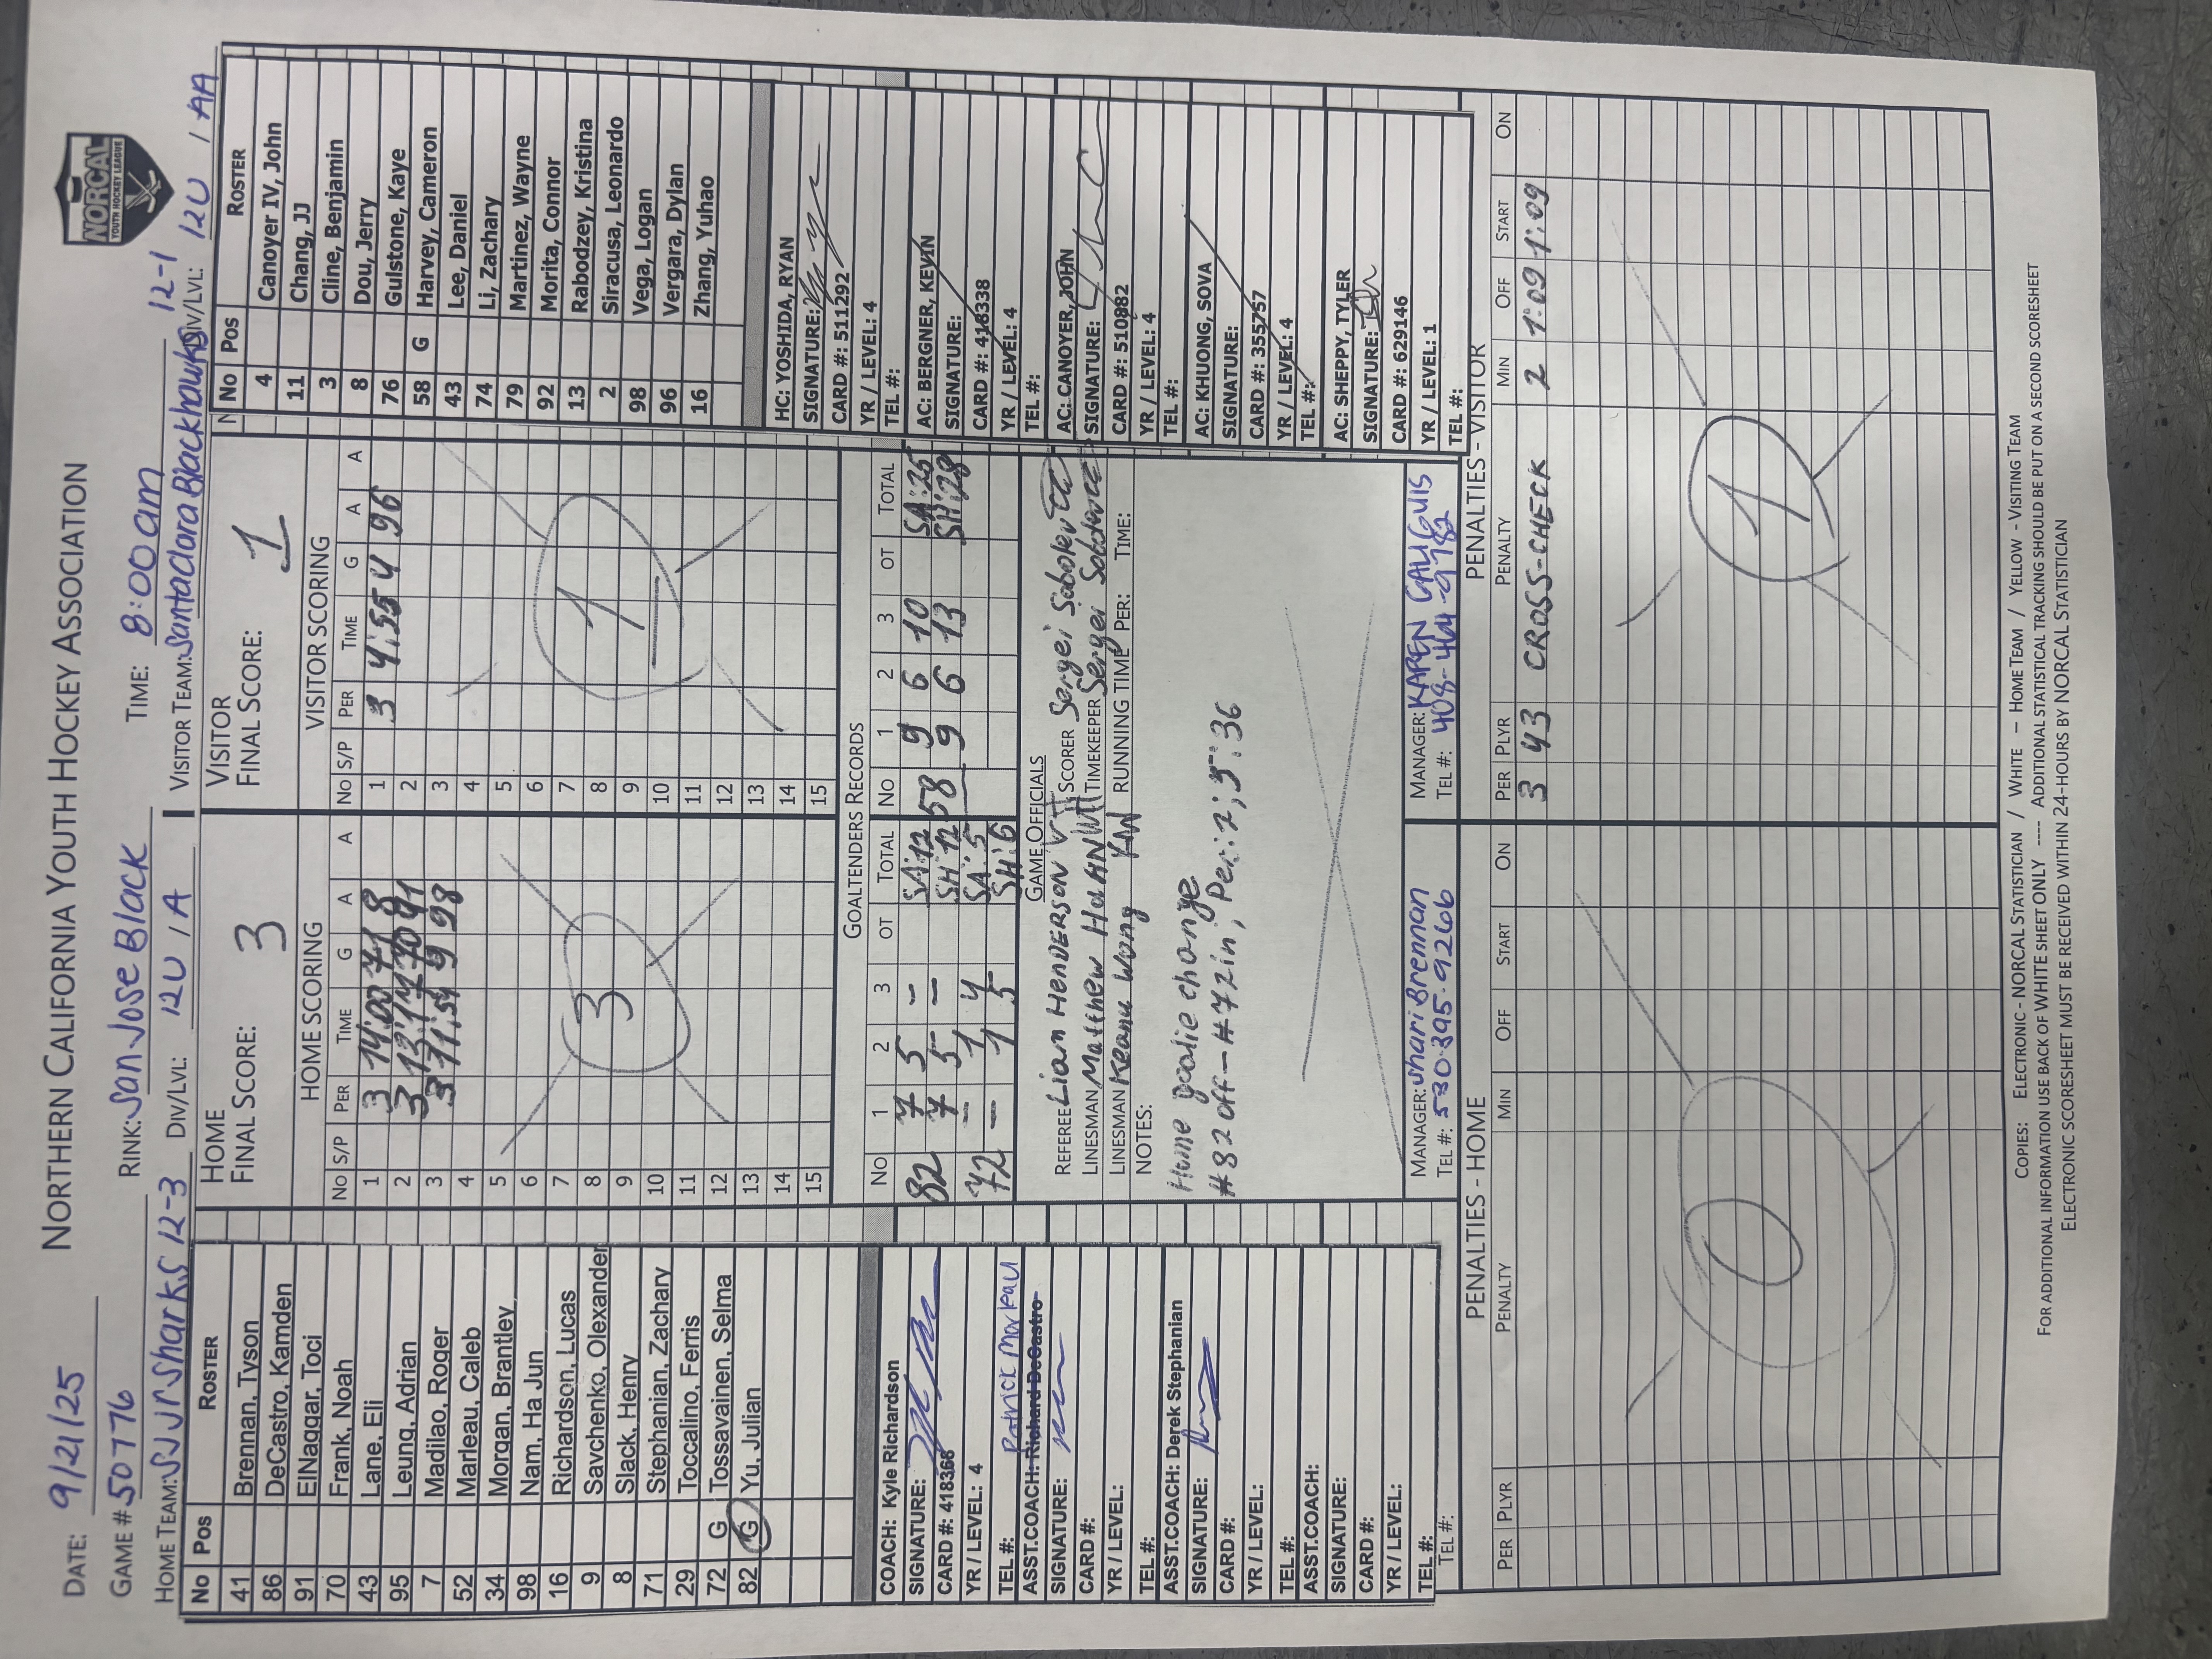 NORTHERN CALIFORNIA YOUTH HOCKEY ASSOCIATION
NORCAL
YOUTH HOCKEY LEAGUE
DATE: 9/21/25
GAME # 50776 RINK: San Jose Black TIME: 8:00am
HOME TEAM: SJ Jr Sharks 12-3 DIV/LVL: 12U / A VISITOR TEAM: Santa Clara Blackhawks 12-1 DIV/LVL: 12U / AA
No Pos ROSTER
41 Brennan, Tyson
86 DeCastro, Kamden
91 ElNaggar, Toci
70 Frank, Noah
43 Lane, Eli
95 Leung, Adrian
7 Madilao, Roger
52 Marleau, Caleb
34 Morgan, Brantley
98 Nam, Ha Jun
16 Richardson, Lucas
9 Savchenko, Olexander
8 Slack, Henry
71 Stephanian, Zachary
29 Toccalino, Ferris
72 G Tossavainen, Selma
82 G Yu, Julian
COACH: Kyle Richardson
SIGNATURE:
CARD #: 418366
YR / LEVEL: 4
TEL #:
Patrick Marleau
ASST.COACH: Richard DeCastro
SIGNATURE:
CARD #:
YR / LEVEL:
TEL #:
ASST.COACH: Derek Stephanian
SIGNATURE:
CARD #:
YR / LEVEL:
TEL #:
ASST.COACH:
SIGNATURE:
CARD #:
YR / LEVEL:
TEL #:
TEL #:
HOME
FINAL SCORE: 3
HOME SCORING
No S/P PER TIME G A A
1 3 14:00 71 8
2 3 13:14 70 91
3 3 11:54 9 98
4
5
6
7
8
9
10
11
12
13
14
15
3
VISITOR
FINAL SCORE: 1
VISITOR SCORING
No S/P PER TIME G A A
1 3 4:55 4 96
2
3
4
5
6
7
8
9
10
11
12
13
14
15
1
GOALTENDERS RECORDS
No 1 2 3 OT TOTAL No 1 2 3 OT TOTAL
82 7 5 - SA:12 58 9 6 10 SA:25
7 5 - SH:12 9 6 13 SH:28
72 - 1 4 SA:5
- 1 5 SH:6
GAME OFFICIALS
REFEREE Liam HENDERSON SCORER Sergei Sobolev
LINESMAN Matthew HAHN TIMEKEEPER Sergei Sobolev
LINESMAN Keanu Wong KW RUNNING TIME PER: TIME:
NOTES:
Home goalie change
#82 off - #72 in, Per: 2; 5:36
MANAGER: Shari Brennan
TEL #: 530-395-9266
MANAGER: KAREN GALIGUIS
TEL #: 408-464-9782
No Pos ROSTER
4 Canoyer IV, John
11 Chang, JJ
3 Cline, Benjamin
8 Dou, Jerry
76 Gulstone, Kaye
58 G Harvey, Cameron
43 Lee, Daniel
74 Li, Zachary
79 Martinez, Wayne
92 Morita, Connor
13 Rabodzey, Kristina
2 Siracusa, Leonardo
98 Vega, Logan
96 Vergara, Dylan
16 Zhang, Yuhao
HC: YOSHIDA, RYAN
SIGNATURE:
CARD #: 511292
YR / LEVEL: 4
TEL #:
AC: BERGNER, KEVIN
SIGNATURE:
CARD #: 418338
YR / LEVEL: 4
TEL #:
AC: CANOYER, JOHN
SIGNATURE:
CARD #: 510882
YR / LEVEL: 4
TEL #:
AC: KHUONG, SOVA
SIGNATURE:
CARD #: 355757
YR / LEVEL: 4
TEL #:
AC: SHEPPY, TYLER
SIGNATURE:
CARD #: 629146
YR / LEVEL: 1
TEL #:
PENALTIES - HOME
PER PLYR PENALTY MIN OFF START ON
0
PENALTIES - VISITOR
PER PLYR PENALTY MIN OFF START ON
3 43 CROSS-CHECK 2 1:09 1:09
1
COPIES: ELECTRONIC - NORCAL STATISTICIAN / WHITE – HOME TEAM / YELLOW - VISITING TEAM
FOR ADDITIONAL INFORMATION USE BACK OF WHITE SHEET ONLY ---- ADDITIONAL STATISTICAL TRACKING SHOULD BE PUT ON A SECOND SCORESHEET
ELECTRONIC SCORESHEET MUST BE RECEIVED WITHIN 24-HOURS BY NORCAL STATISTICIAN